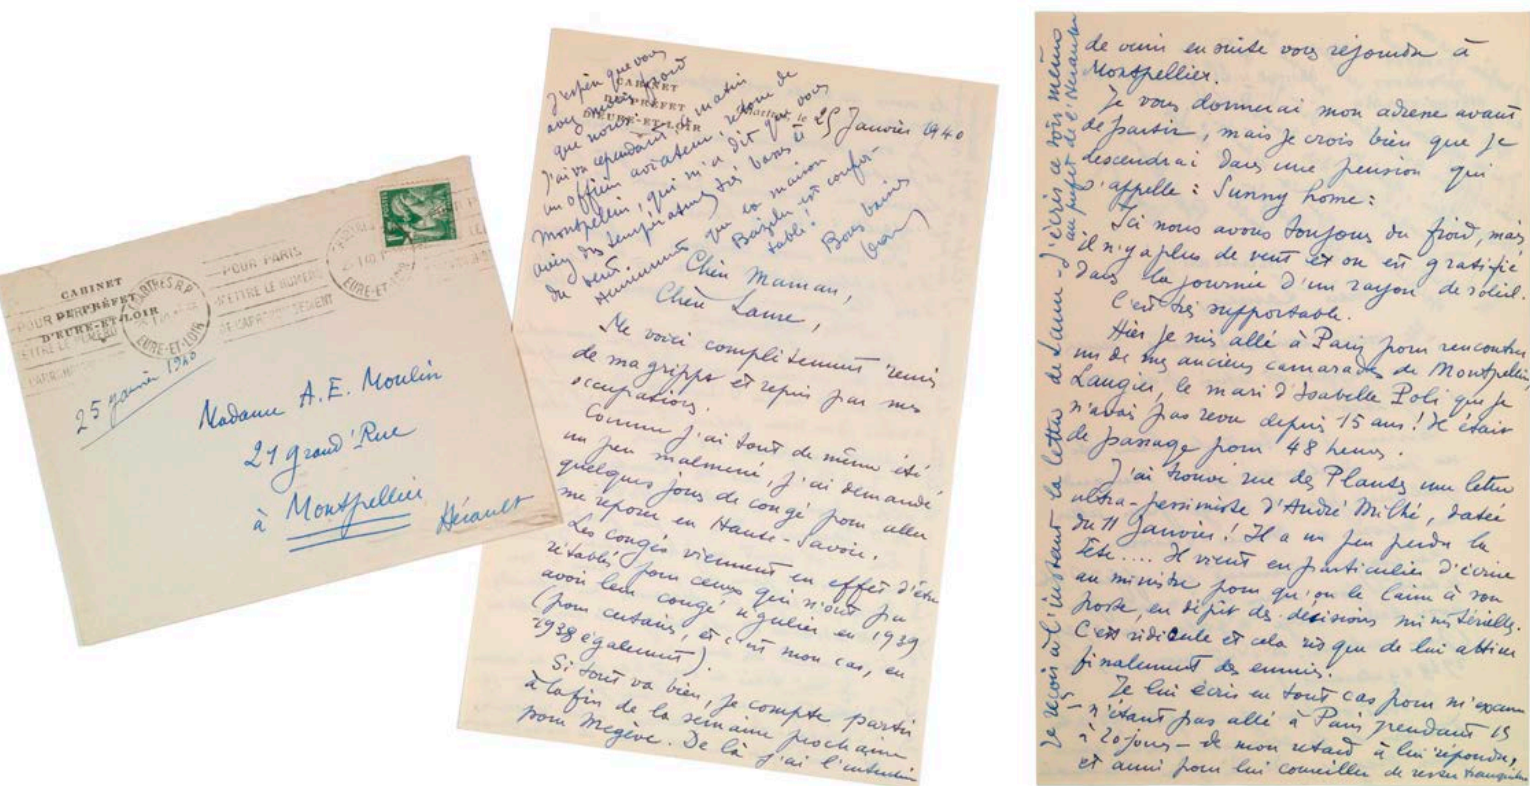 CABINET
DU PRÉFET
D'EURE-ET-LOIR
POUR PARIS
METTRE LE NUMERO
CHARTRES R.P.
EURE-ET-LOIR
POUR PARIS
METTRE LE NUMERO
D'ARRONDISSEMENT
EURE-ET-LOIR
25 janvier 1940
Madame A. E. Moulin
21 grand'Rue
à Montpellier
Hérault
J'espère que vous
avez moins froid
que nous.
J'ai vu cependant ce matin
un officier aviateur, retour de
Montpellier, qui m'a dit que vous
aviez des températures très basses et
du vent.
Heureusement que la maison
Bazille est confor-
table!
Bons baisers
Jean
CABINET
DU PRÉFET
D'EURE-ET-LOIR
Chartres, le 25 Janvier 1940
Chère Maman,
Chère Laure,
Me voici complètement remis
de ma grippe et repris par mes
occupations.
Comme j'ai tout de même été
un peu malmené, j'ai demandé
quelques jours de congé pour aller
me reposer en Haute-Savoie.
Les congés viennent en effet d'être
rétablis pour ceux qui n'ont pu
avoir leur congé régulier en 1939
(pour certains, et c'est mon cas, en
1938 également).
Si tout va bien, je compte partir
à la fin de la semaine prochaine
pour Megève. De là j'ai l'intention
de venir ensuite vous rejoindre à
Montpellier.
Je vous donnerai mon adresse avant
de partir, mais je crois bien que je
descendrai dans une pension qui
s'appelle : Sunny home :
Ici nous avons toujours du froid, mais
il n'y a plus de vent et on est gratifié
dans la journée d'un rayon de soleil.
C'est très supportable.
Hier je suis allé à Paris pour rencontrer
un de mes anciens camarades de Montpellier
Laugier, le mari d'Isabelle Poli que je
n'avais pas revu depuis 15 ans! Il était
de passage pour 48 heures.
J'ai trouvé rue des Plantes une lettre
ultra-pessimiste d'André Milhé, datée
du 11 Janvier! Il a un peu perdu la
tête.... Il vient en particulier d'écrire
au ministre pour qu'on le laisse à son
poste, en dépit des décisions ministérielles.
C'est ridicule et cela risque de lui attirer
finalement des ennuis.
Je lui écris en tout cas pour m'excuser
- n'étant pas allé à Paris pendant 15
à 20 jours - de mon retard à lui répondre,
et aussi pour lui conseiller de rester tranquille
Je reçois à l'instant la lettre de Laure - J'écris ce soir même
au préfet de l'Hérault